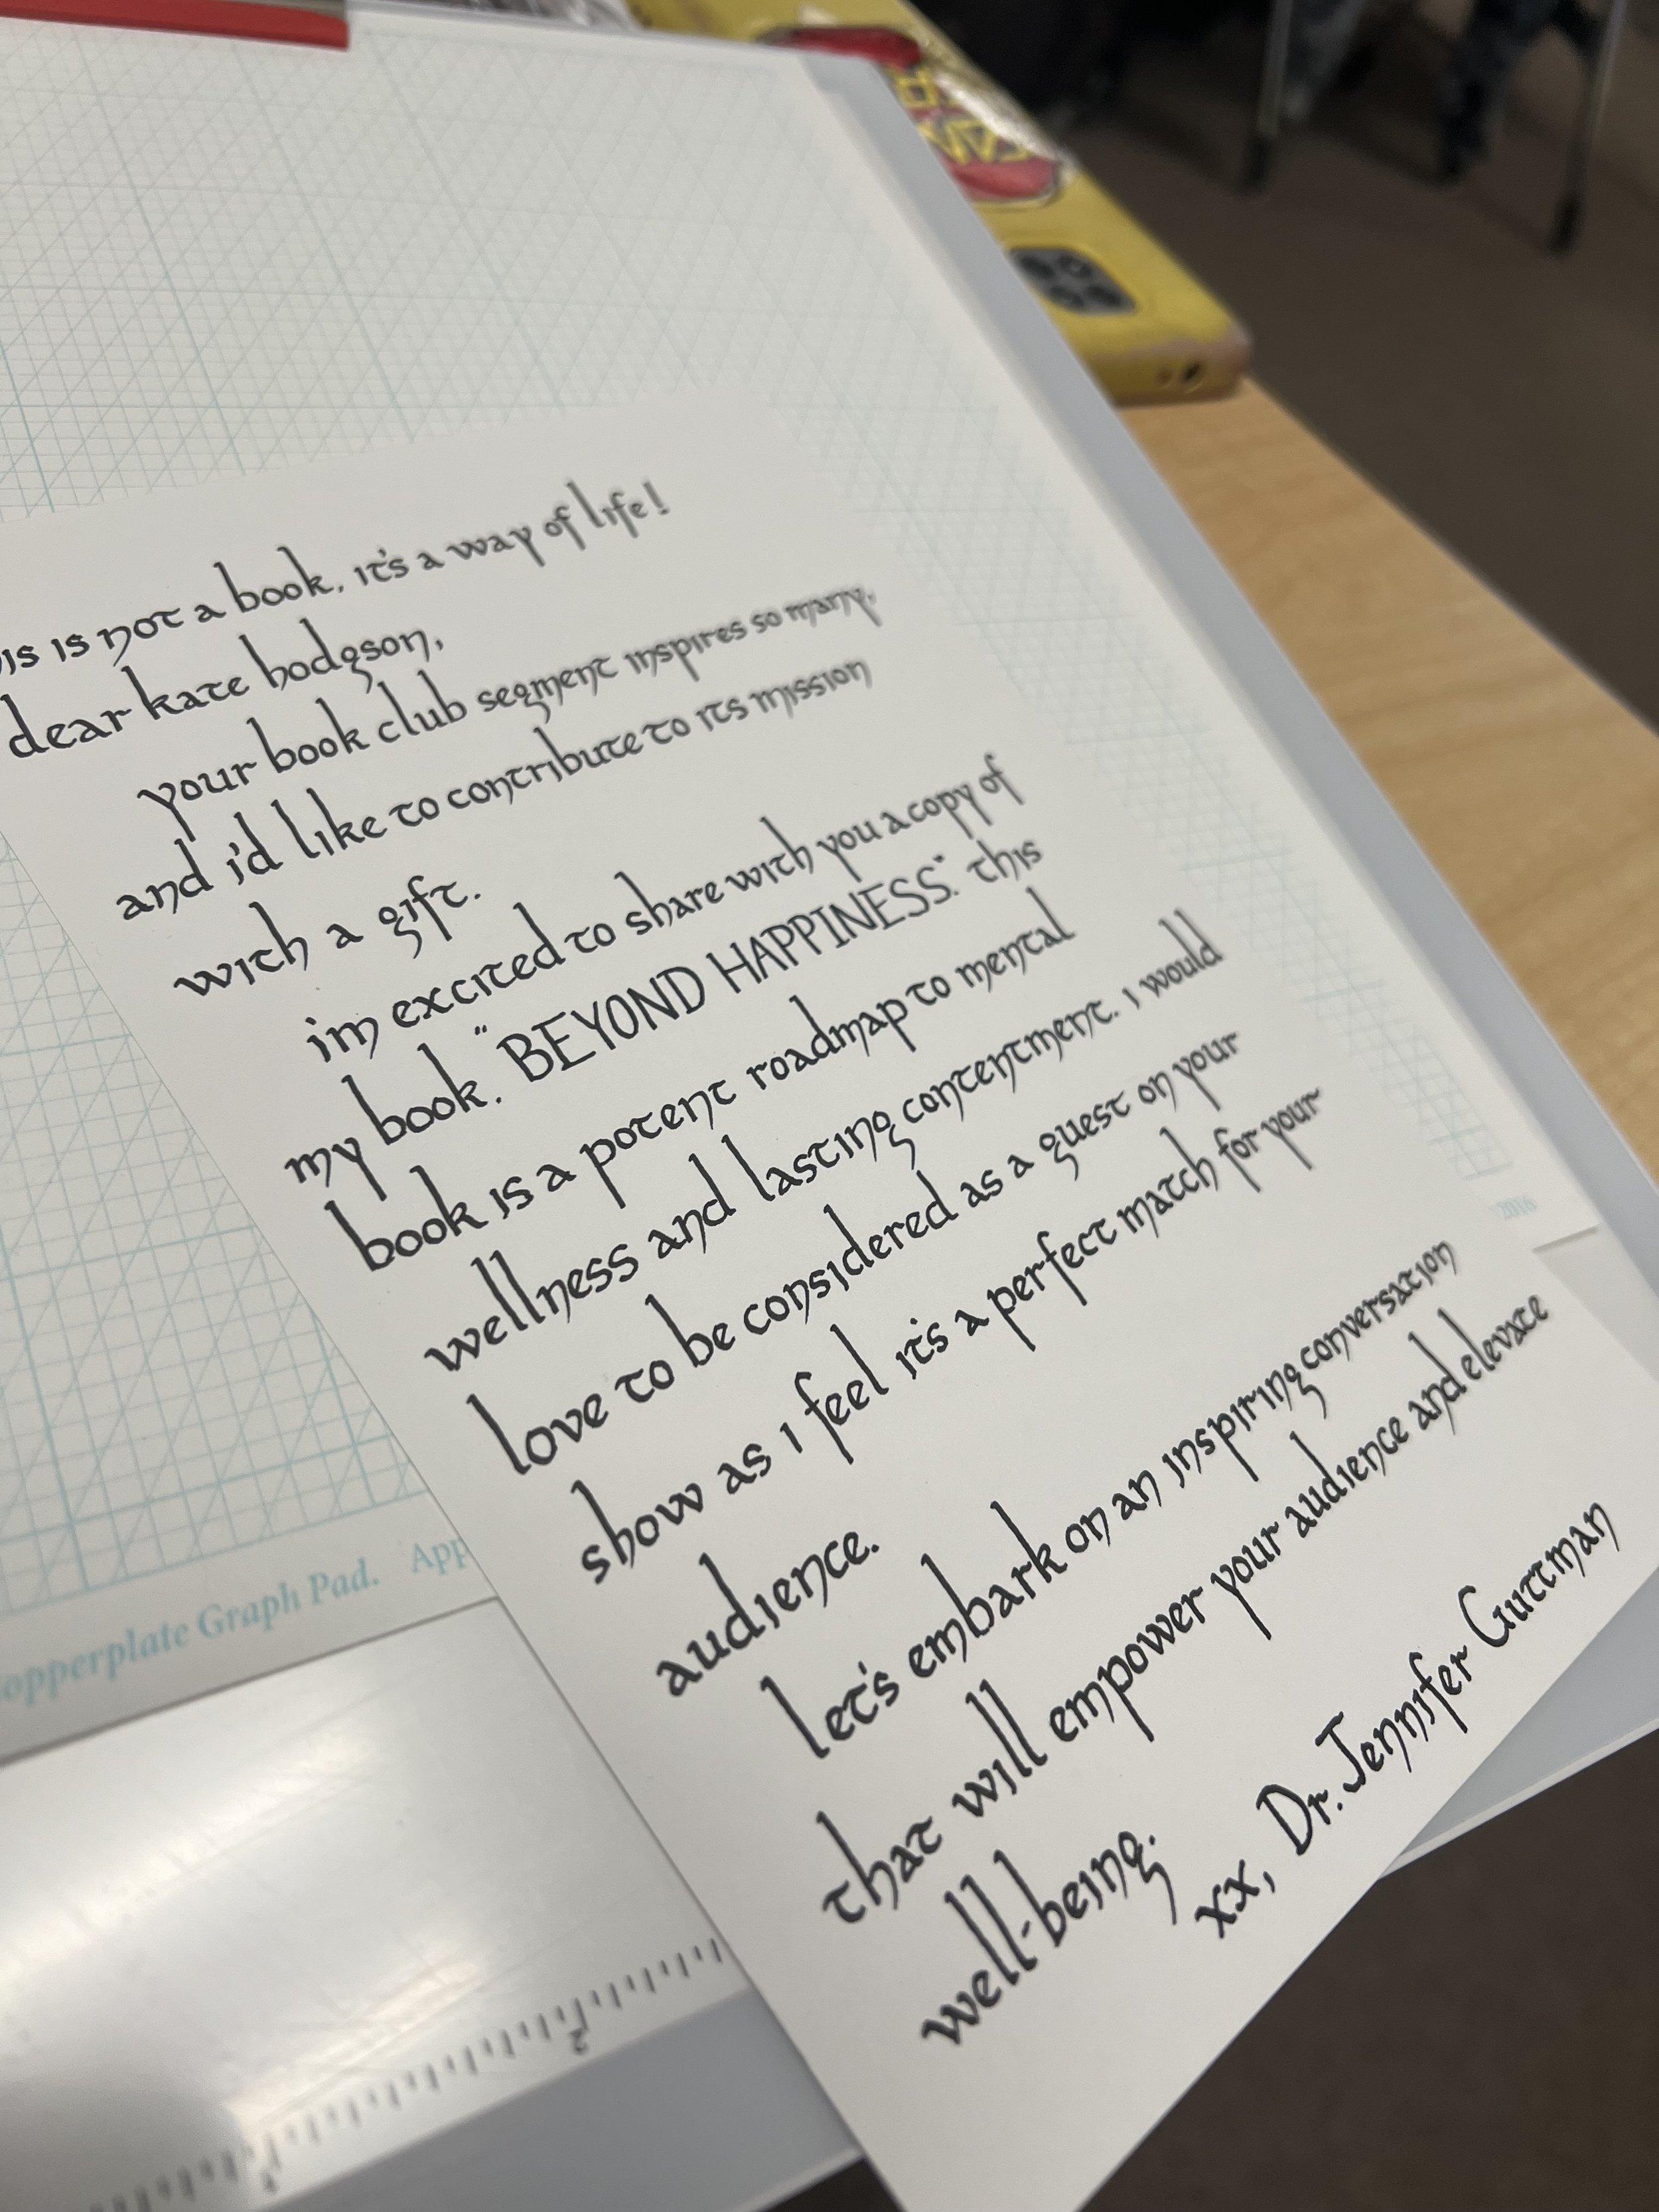 is is not a book, it's a way of life!
dear kate hodgson,
your book club segment inspires so many,
and i'd like to contribute to its mission
with a gift.
im excited to share with you a copy of
my book, "BEYOND HAPPINESS." this
book is a potent roadmap to mental
wellness and lasting contentment. i would
love to be considered as a guest on your
show as i feel it's a perfect match for your
audience.
let's embark on an inspiring conversation
that will empower your audience and elevate
well-being.
xx, Dr. Jennifer Guttman
2016
opperplate Graph Pad. App
2